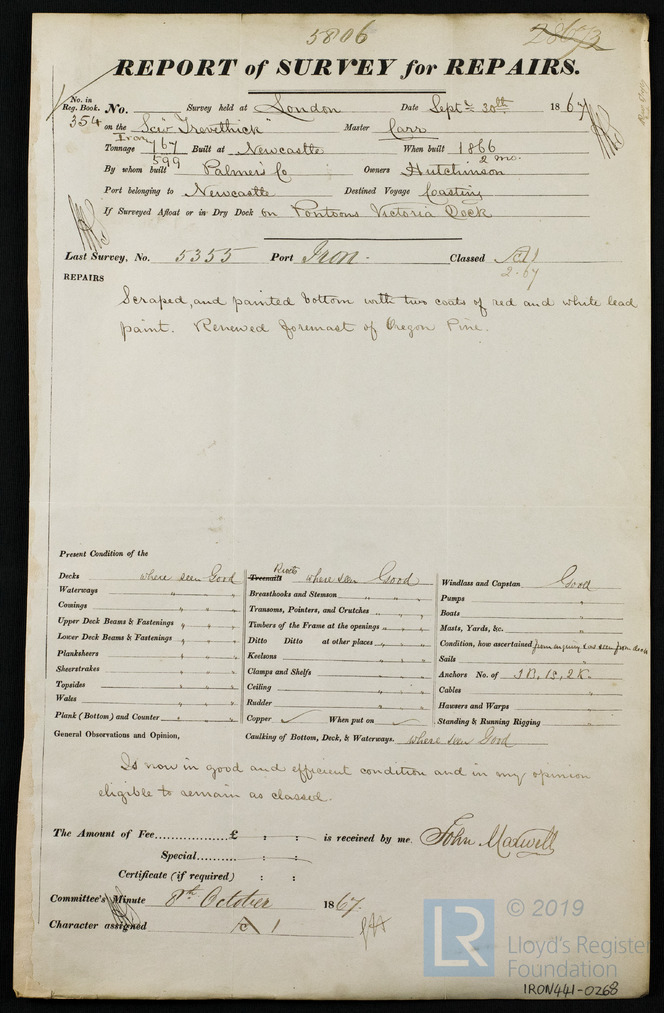 5806
28673
REPORT of SURVEY for REPAIRS.
No. in Reg. Book. No. Survey held at London Date Sept. 30th 1867
354 on the Scw "Trevethick" Master Carr
Iron
Tonnage 767 Built at Newcastle When built 1866
599 2 mo.
By whom built Palmers Co Owners Hutchinson
Port belonging to Newcastle Destined Voyage Coasting
If Surveyed Afloat or in Dry Dock On Pontoons Victoria Dock
Last Survey, No. 5355 Port Iron. Classed A1
2.67
REPAIRS
Scraped, and painted bottom with two coats of red and white lead
paint. Renewed foremast of Oregon Pine.
Present Condition of the
Decks where seen Good
Waterways " " "
Comings " " "
Upper Deck Beams & Fastenings " " "
Lower Deck Beams & Fastenings " " "
Planksheers " " "
Sheerstrakes " " "
Topsides " " "
Wales " " "
Plank (Bottom) and Counter " " "
General Observations and Opinion,
Rivets
Treenails where seen Good
Breasthooks and Stemson " " "
Transoms, Pointers, and Crutches " " "
Timbers of the Frame at the openings " " "
Ditto Ditto at other places " " "
Keelsons " " "
Clamps and Shelfs " " "
Ceiling " " "
Rudder " " "
Copper ✓ When put on ✓
Caulking of Bottom, Deck, & Waterways. where seen Good
Windlass and Capstan Good
Pumps "
Boats "
Masts, Yards, &c. "
Condition, how ascertained from enquiry & as seen from deck
Sails "
Anchors No. of 3B, 1S, 2K.
Cables "
Hawsers and Warps "
Standing & Running Rigging "
Is now in good and efficient condition and in my opinion
eligible to remain as classed.
The Amount of Fee............... £ : : is received by me, John Maxwell
Special.......... : :
Certificate (if required) : :
Committee's Minute 8th October 1867.
Character assigned A 1
© 2019
LR
Lloyd's Register
Foundation
IRON441-0268